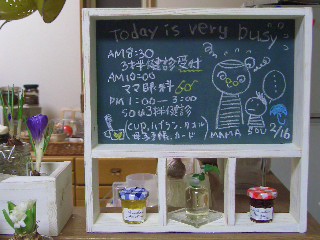 Today is very busy
AM 8:30
3才半健診受付
AM 10:00
ママ眼科 GO
PM 1:00 — 3:00
SOU 3才半健診
(CUP, ハイラン
母子手帳、カード)
MAMA
SOU
2/16